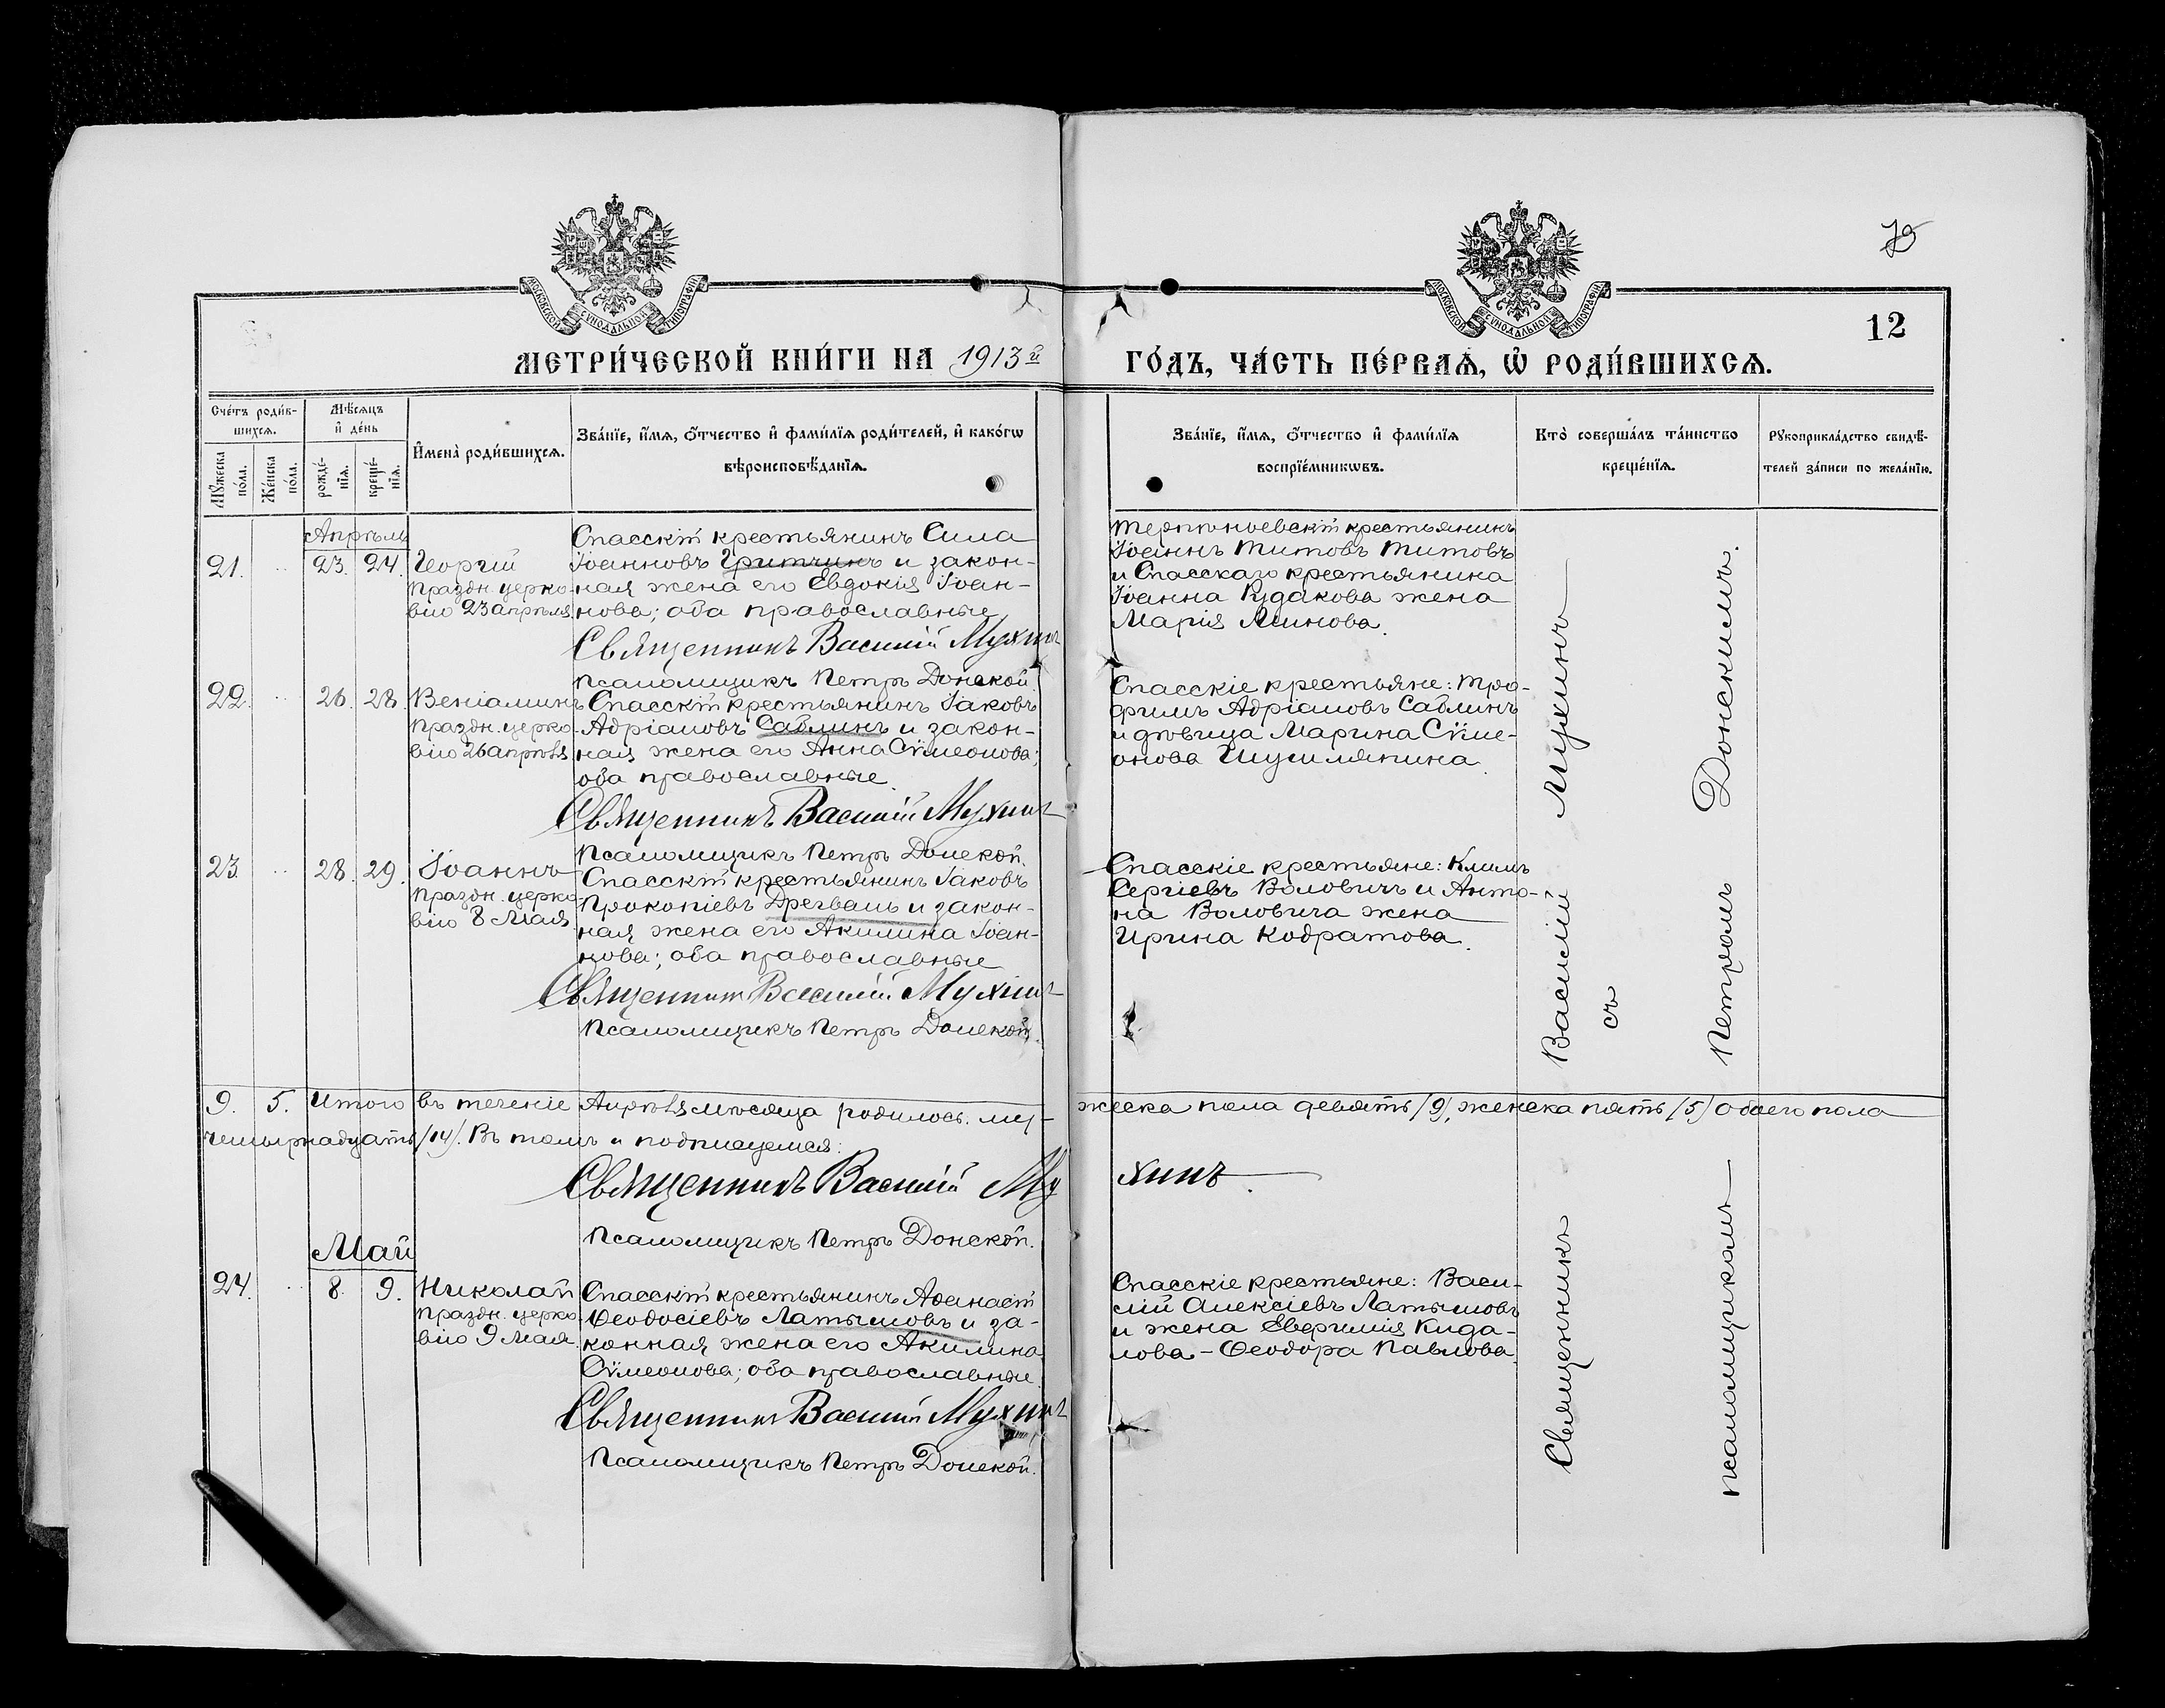 70
12
МОСКОВСКОЙ СѴНОДАЛЬНОЙ ТИПОГРАФІИ
МОСКОВСКОЙ СѴНОДАЛЬНОЙ ТИПОГРАФІИ
МЕТРИ́ЧЕСКОЙ КНИ́ГИ НА 1913й ГО́ДЪ, ЧА́СТЬ ПЕ́РВАѦ, Ѡ҆ РОДИ́ВШИХСѦ.
Сче́тъ роди́в-
шихсѧ.
Мꙋ́жеска по́ла.
Же́нска по́ла.
Мѣ́сѧцъ
и҆ де́нь
рожде́-
нїѧ.
креще́-
нїѧ.
И҆мена̀ роди́вшихсѧ.
Зва́нїе, и҆́мѧ, ѻ҆́тчество и҆ фами́лїѧ роди́телей, и҆ како́гѡ
вѣроисповѣ́данїѧ.
Зва́нїе, и҆́мѧ, ѻ҆́тчество и҆ фами́лїѧ
воспрїе́мникѡвъ.
Кто̀ соверша́лъ та́инство
креще́нїѧ.
Рꙋкоприкла́дство свидѣ́-
телей за́писи по жела́нїю.
Апрѣль
21. 23. 24. Георгій
Праздн. церко-
вію 23 апрѣля
Спасскій крестьянинъ Сила
Іоанновъ Гритчинъ и закон-
ная жена его Евдокія Іоан-
нова; оба православные
Священникъ Василій Мухинъ
Псаломщикъ Петръ Донской.
Іоаннъ Титовъ Титовъ
и Спасскаго крестьянина
Іоанна Рудакова жена
Марія
22. 26. 28. Веніаминъ
Праздн. церко-
вію 26 апрѣля
Спасскій крестьянинъ Іаковъ
Адріановъ Саблинъ и закон-
ная жена его Анна Сѵмеонова;
оба православные.
Священникъ Василій Мухинъ
Псаломщикъ Петръ Донской.
Спасскіе крестьяне: Тро-
фимъ Адріановъ Саблинъ
и дѣвица Марина Сѵме-
онова
23. 28. 29. Іоаннъ
Праздн. церко-
вію 8 Мая
Спасскій крестьянинъ Іаковъ
Прокопіевъ Дрегваль и закон-
ная жена его Акилина Іоан-
нова; оба православные
Священникъ Василій Мухинъ
Псаломщикъ Петръ Донской.
Спасскіе крестьяне: Климъ
Сергіевъ Воловичъ и Анто-
на Воловича жена
Ирина Кодратова.
9. 5. Итого въ теченіе Апрѣля мѣсяца родилось: му-жеска пола девять /9/, женска пять /5/ обоего пола
четырнадцать /14/. Въ томъ и подписуемся:
Священникъ Василій Мухинъ
Псаломщикъ Петръ Донской.
Май
24. 8. 9. Николай
Праздн. церко-
вію 9 мая.
Спасскій крестьянинъ Аѳанасій
Ѳеодосіевъ Латышовъ и за-
конная жена его Акилина
Сѵмеонова; оба православные.
Священникъ Василій Мухинъ
Псаломщикъ Петръ Донской.
Спасскіе крестьяне: Васи-
лій Алексіевъ Латышовъ
и жена Евѳимія Кида-
лова - Ѳеодора Павлова.
Священникъ Василій Мухинъ
съ
псаломщикомъ Петромъ Донскимъ.